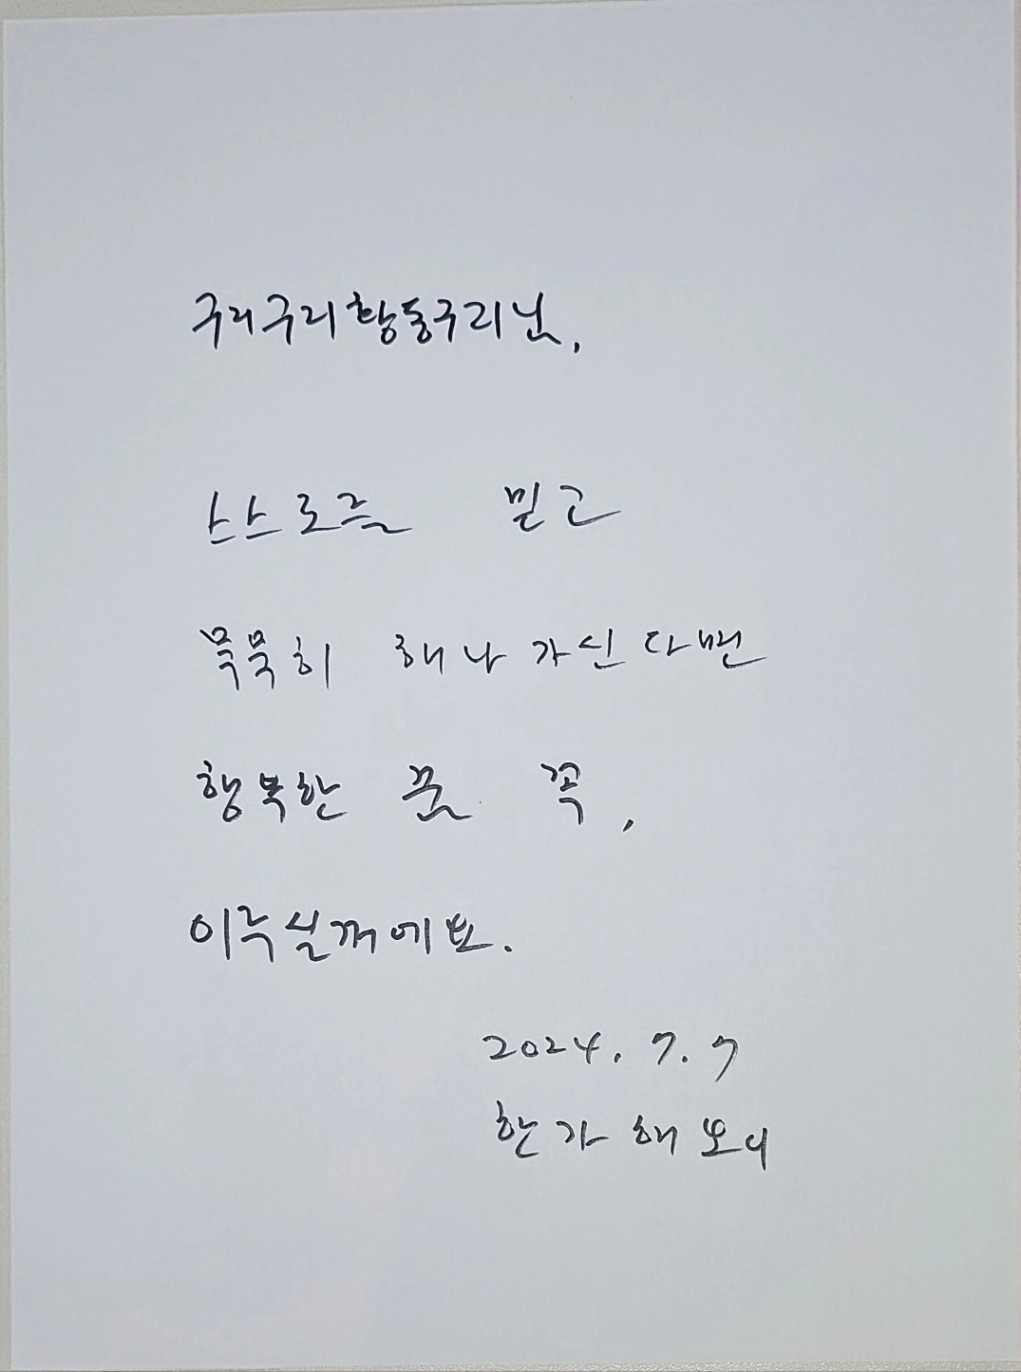 구리구리황동구리님,
스스로를 믿고
묵묵히 해나가신다면
행복한 꿈 꼭,
이루실꺼에요.
2024. 7. 7
한가해보